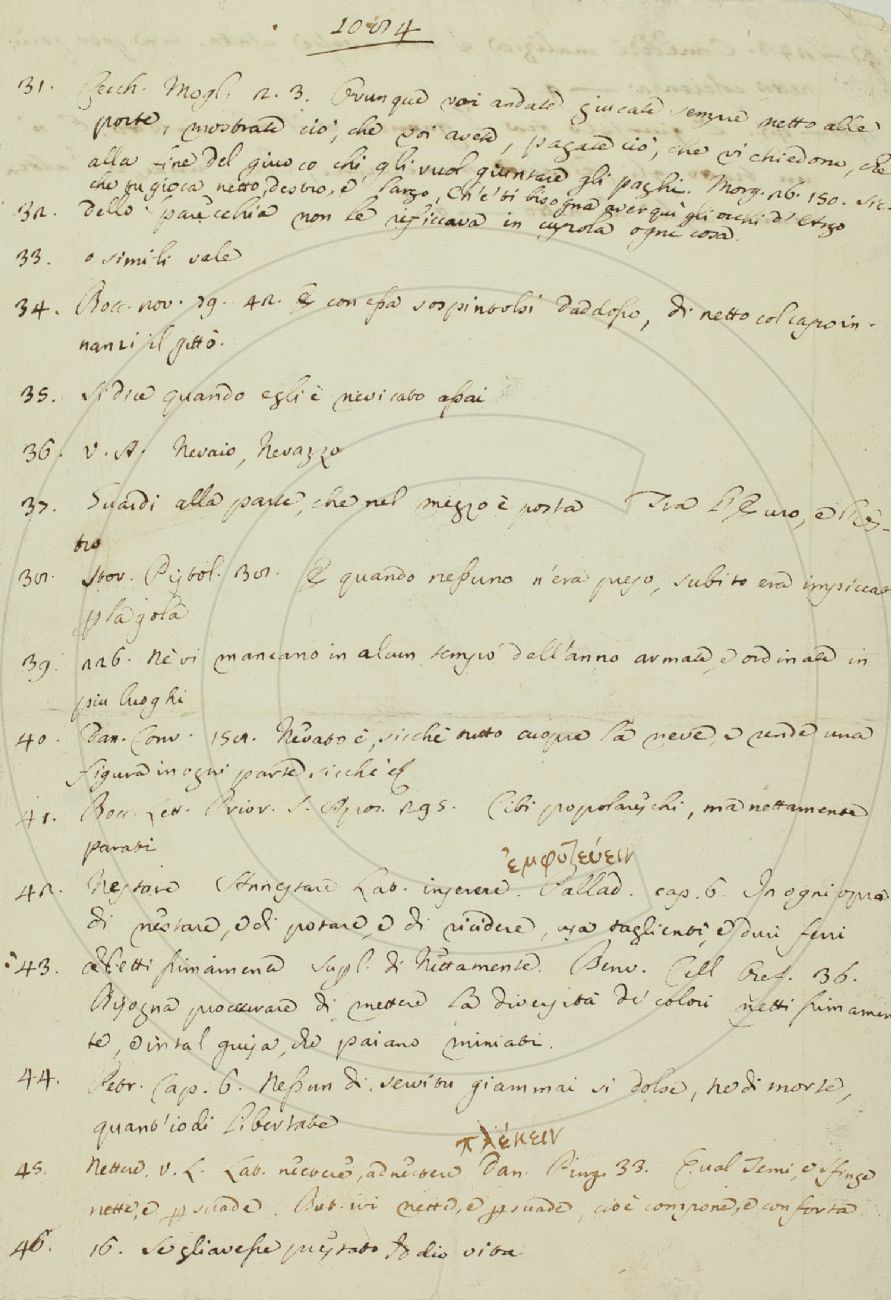 1084
31. Cecch. Mogl. 2. 3. Ovunque voi andate giucate sempre netto alle
porte, mostrate ciò, che voi avete, pagate ciò, che vi chiedono, che
alla fine del giuoco chi gli vuol giuntare gli paghi. Morg. 26. 150. Sic.
che tu gioca netto, destro, e largo, Ch'e' ti bisogna aver quì gli occhi d'Argo
32. dello parecchia non le reficcava in cupola ogni cosa
33. o simili vale
34. Bocc. nov. 79. 42. E con essa sospintolsi daddosso, di netto col capo in-
nanzi il gittò.
35. Si dice quando egli è nevicato assai
36. V. A. Nevaio, Nevazzo
37. Guardi alla parte, che nel mezzo è posta Tra l'Euro, e l'
tro
38. Stor. Pistol. 38. E quando nessuno n'era preso, subito era impiccat
p la gola
39. 226. Nè vi mancano in alcun tempo dell'anno armate, e ordinate in
piu luoghi
40. Dan. Conv. 152. Nevato è, sicchè tutto cuopre la neve, e rende una
figura in ogni parte, sicchè
41. Bocc. Lett. Prior. S. Apos. 295. Cibi popolareschi, ma nettamente
parati
ἐμφυτεύειν
42. Nestare Annestare Lat. inserere. Pallad. cap. 6. In ogni opra
di nestare, e di potare, e di ricidere, usa taglienti, e duri ferri
43. Nettissimamente supl. di Nettamente. Benv. Cell Oref. 36.
Bisogna proccurare di mettere la diversità de' colori nettissimamen
te, e in tal guisa, che paiano miniati.
44. Petr. Cap. 6. Nessun di servitu giammai si dolse, Ne di morte,
quant'io di Libertate
πλέκειν
45. Nettere. V. L. Lat. nectere, adnectere Dan. Purg. 33. Qual Temi, e Sfinge
nette, e psuade. But. ivi nette, e psuade, cioè compone, e conforta
46. 16. Se gli avesse prestato Iddio vita